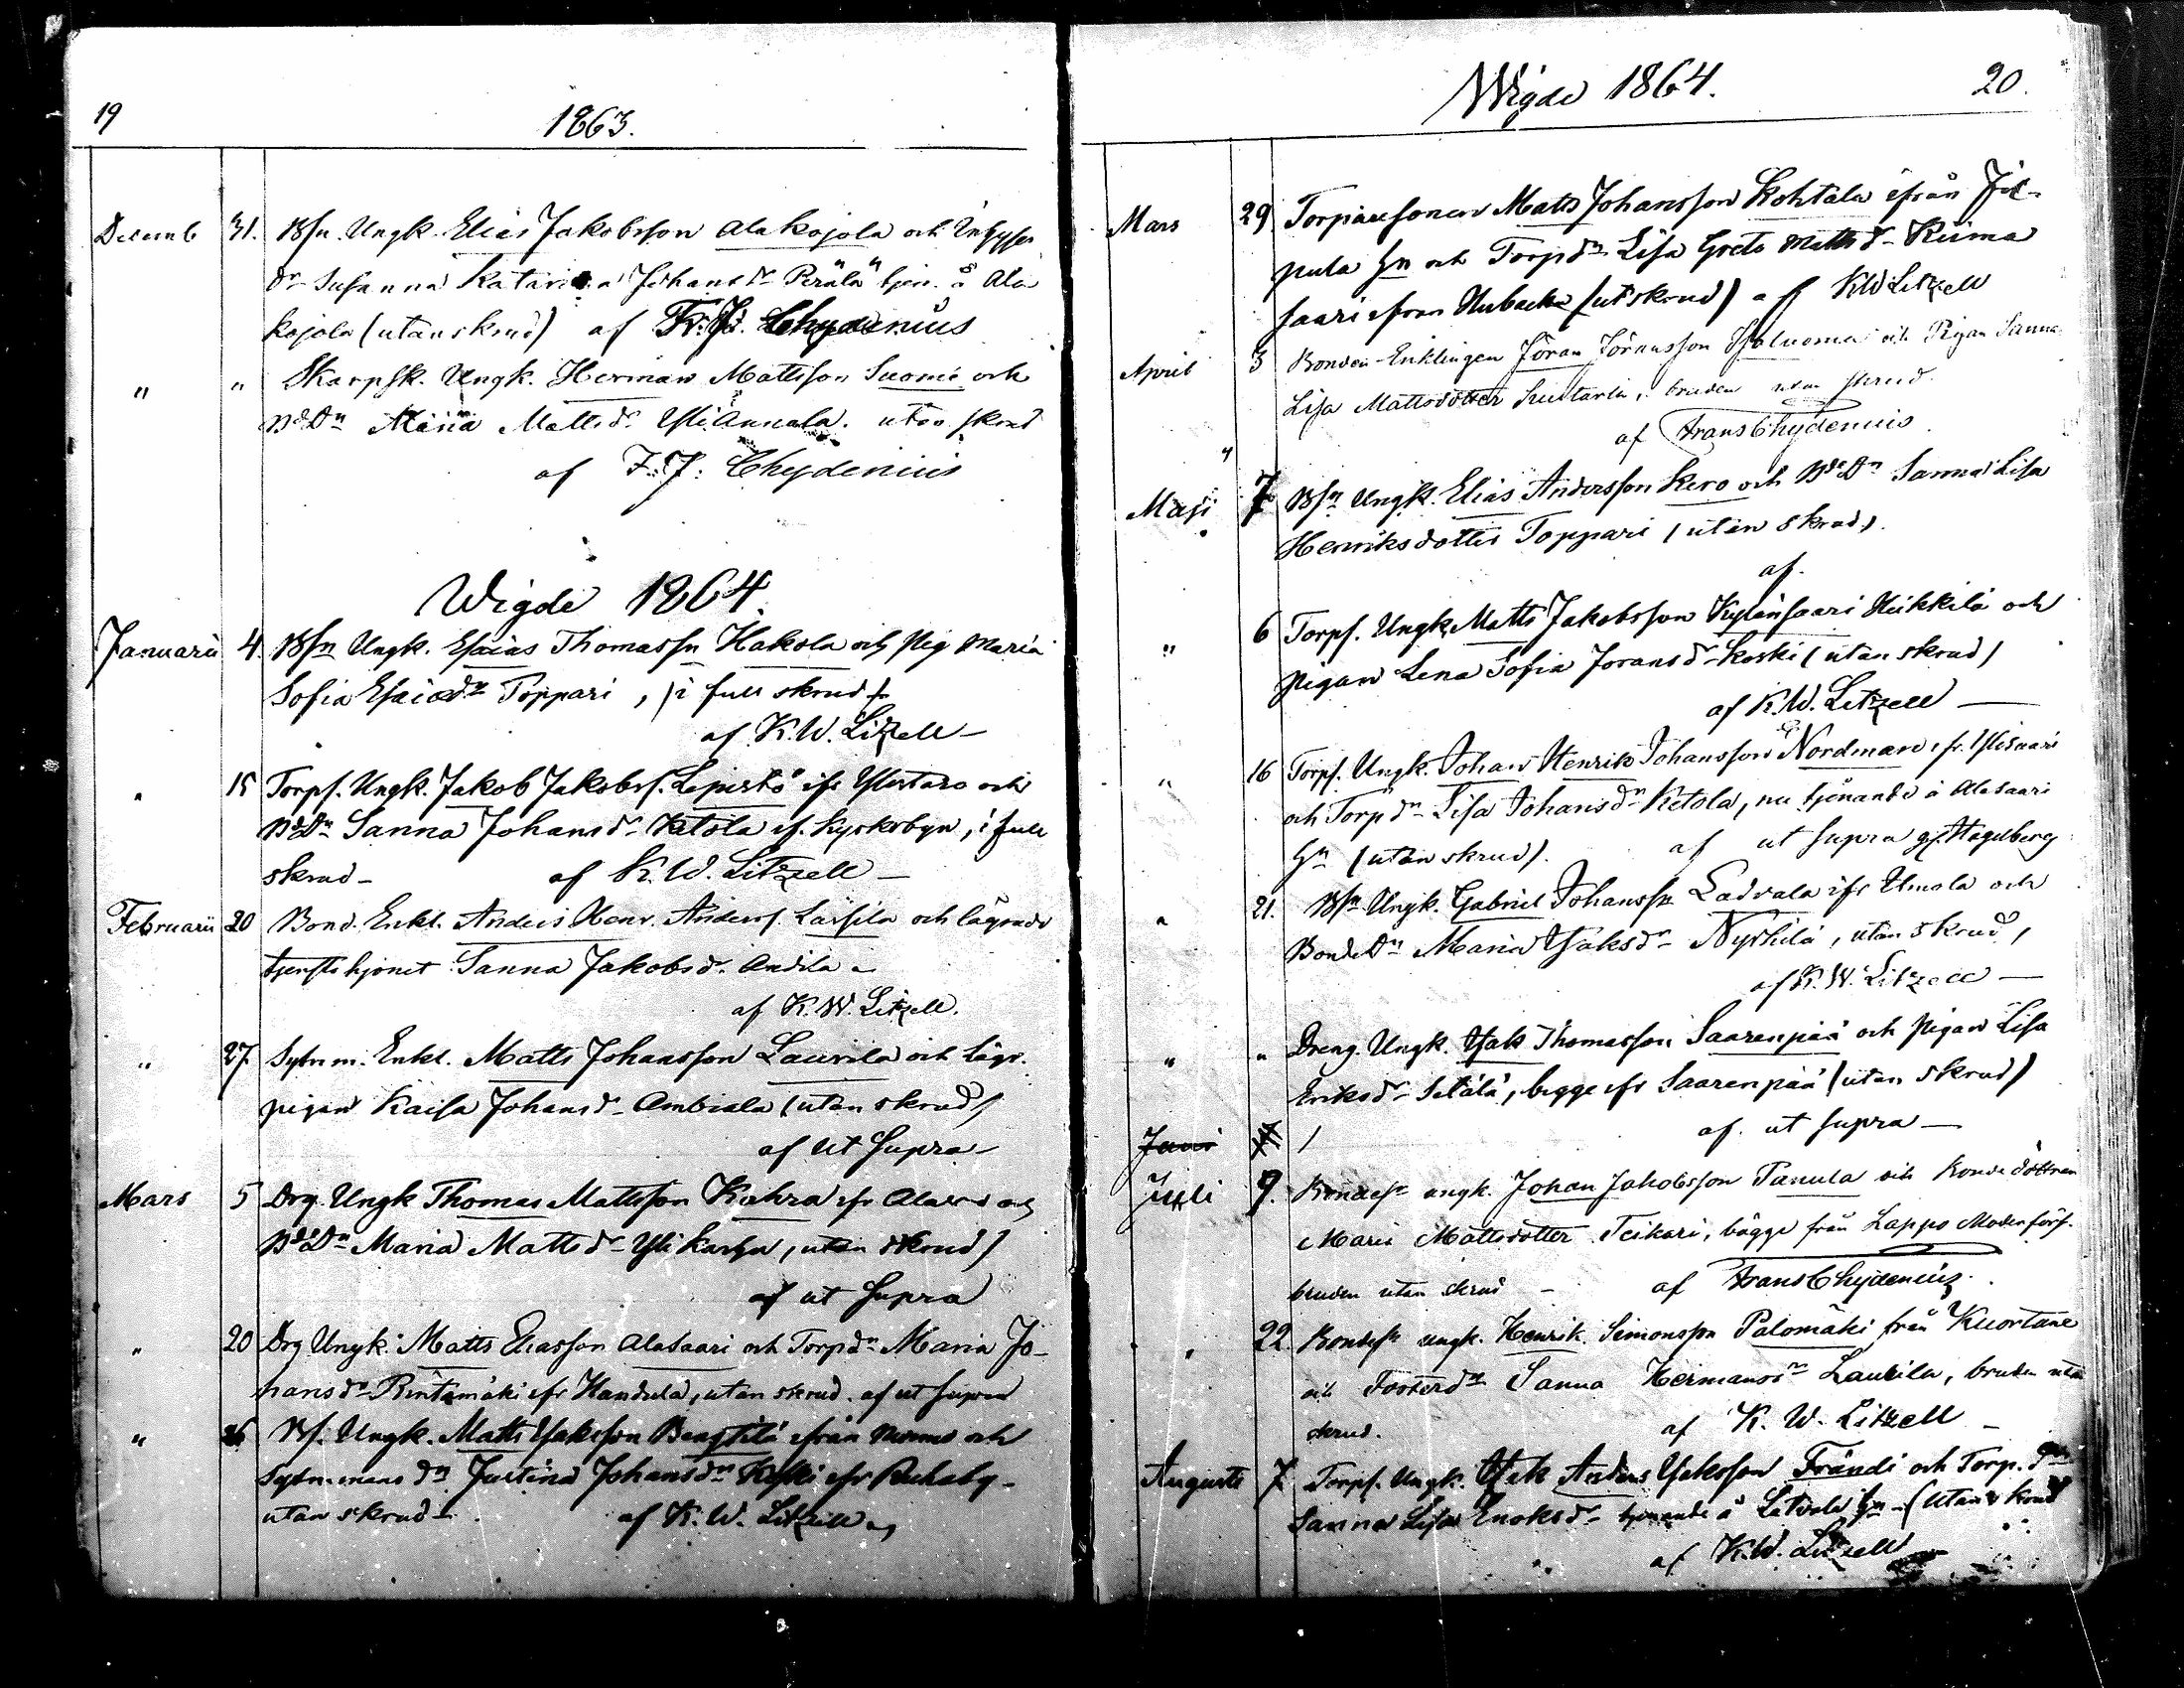 19
1863.
Decemb 31. Bsn. Ungk. Elias Jakobsson Alakojola och Inhyses
dr Susanna Katarina Johansdr Perälä tjen. å Ala
kojola (utan skrud) af Fr. J. Chydenius
" " Skarpsk. Ungk. Herman Mattsson Suomi och
BdeDn Maria Mattsdr Yliannala. utan skrud
af F. J. Chydenius
Wigde 1864.
Januarii 4. Bsn Ungk. Esaias Thomassn Hakola och Pig Maria
Sofia Esaiedr Toppari, (i full skrud)
af K. W. Litzell
" 15 Torps. Ungk. Jakob Jakobss. Lepistö ifr Ylistaro och
BdeDn Sanna Johansdr Ketola if. Kyrkobyn, i full
skrud - af K. W. Litzell -
Februarii 20 Bond. Enkl. Anders Henr. Anderss. Lassila och lägrade
tjensthjonet Sanna Jakobsdr. Andila -
af K. W. Litzell.
" 27. Sytnm. Enkl. Matts Johansson Laurila och lägr.
pigan Kaisa Johansdr Ambiala (utan skrud)
af ut Supra -
Mars 5 Drg. Ungk Thomas Mattsson Kahra ifr Alavo och
BdeDn Maria Mattsdr Yli (utan skrud)
af ut Supra
" 20 Drg Ungk. Matts Eliasson Alasaari och Torpdn Maria Jo-
hansdr Rintamäki ifr Kandola, utan skrud. af ut Supra
" 26 Bs. Ungk. Matts Isaksson Bengtilä ifrån och
Sytn.mans dn Justina Johansdr Koski ifr Ruhaby -
utan skrud - af K. W. Litzell
Wigde 1864. 20.
Mars 29 Torparesonen Matts Johansson Kohtala ifrån Jil-
pula hn och Torpdn Lisa Greta Mattsdr Reima
saari ifrån (ut skrud) af KW Litzell
April 3 Bonden-Enklingen Jöran Jöransson Isoluoma och Pigan Sanna
Lisa Mattsdotter bruden utan skrud.
af Frans Chydenius.
Maji 7 Bsn Ungk. Elias Andersson Kero och BdeDn Sanna Lisa
Henriksdotter Toppari (utan skrud).
af.
" 6 Torps. Ungk. Matts Jakobsson Kylänsaari Heikkilä och
pigan Lena Sofia Joransdr Koski (utan skrud)
af K. W. Litzell
" 16 Torps. Ungk. Johan Henrik Johansson Nordman, fr. Ylisaari
och Torpdn Lisa Johansdr Ketola, nu tjenande å Alasaari
hn (utan skrud). af ut supra
" 21. Bsn Ungk. Gabriel Johanssn Ladvala ifr Ilmola och
BondeDn Maria Isaksdr Nyrhilä, utan skrud,
af K. W. Litzell
" " Dreng. Ungk. Isak Thomasson Saarenpää och Pigan Lisa
Eriksdr Setälä, begge ifr Saarenpää (utan skrud)
af. ut supra
Juni
Juli 9. Bondesn ungk. Johan Jakobsson Panula och Bondedottren
Maria Mattsdotter Teikari, bägge från Lappo Moderförs.
bruden utan skrud - af Frans Chydenius.
" 22. Bondesn ungk. Henrik Simonsson Palomäki från Kuortane
och Fosterdn Sanna Hermansdr Laurila, bruden utan
skrud. af K. W. Litzell
Augusti 7. Torps. Ungk. Isak Anders Isaksson Frändi och Torp.dn
Sanna Lisa Enoksdr tjenande å Latvala hn - (Utan skrud
af K.W. Litzell